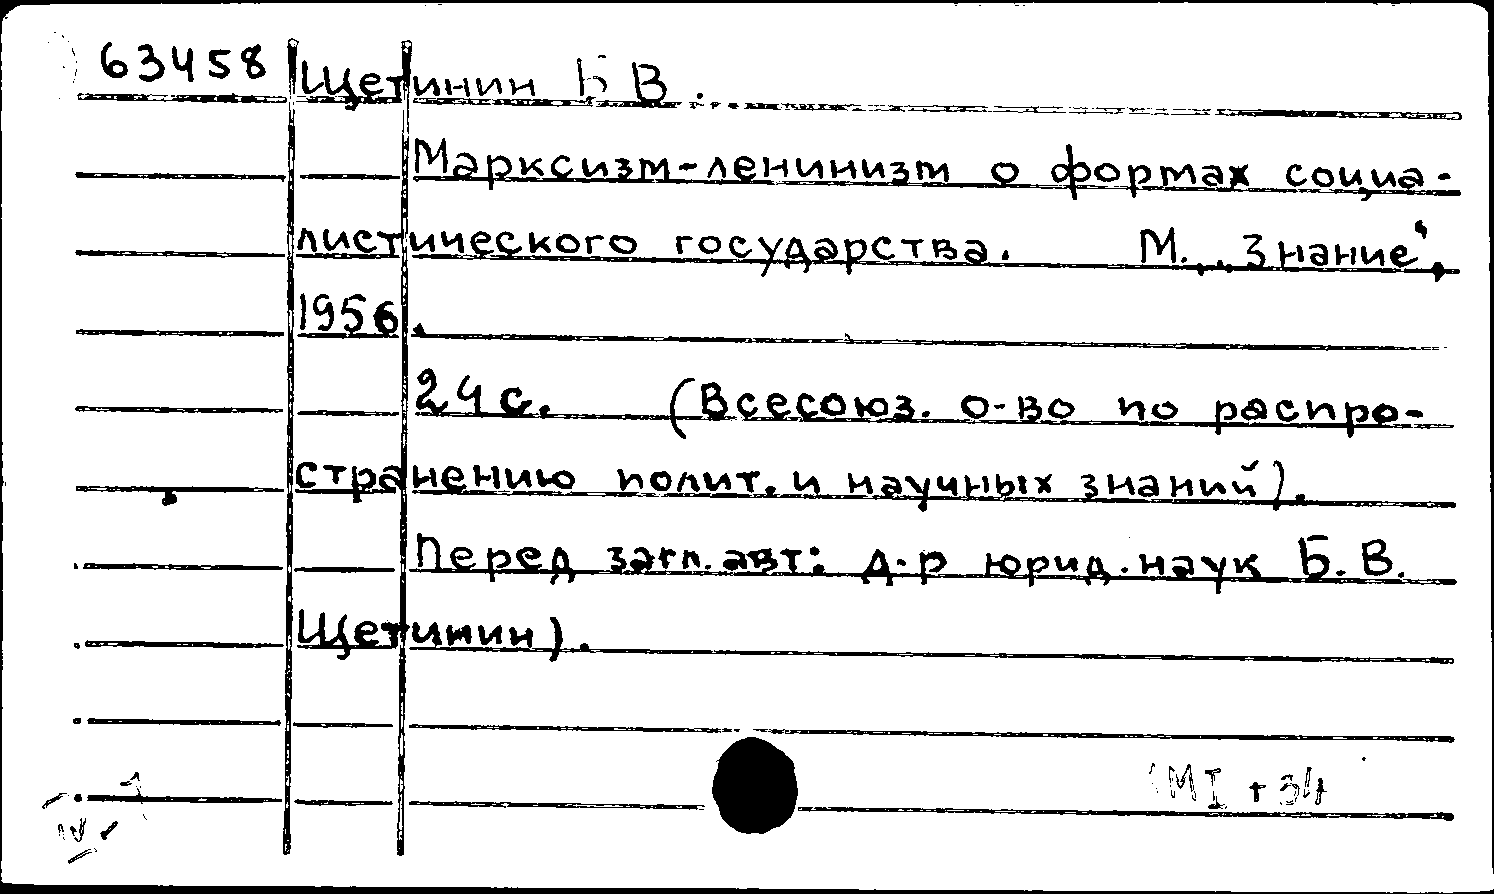 63458 Щетинин Б В.
Марксизм-ленинизм о формах социа-
листического государства. М., „Знание“,
1956.
24 с. (Всесоюз. о-во по распро-
странению полит. и научных знаний).
Перед загл. авт: д-р юрид. наук Б. В.
Щетинин).
МI + 34
IV